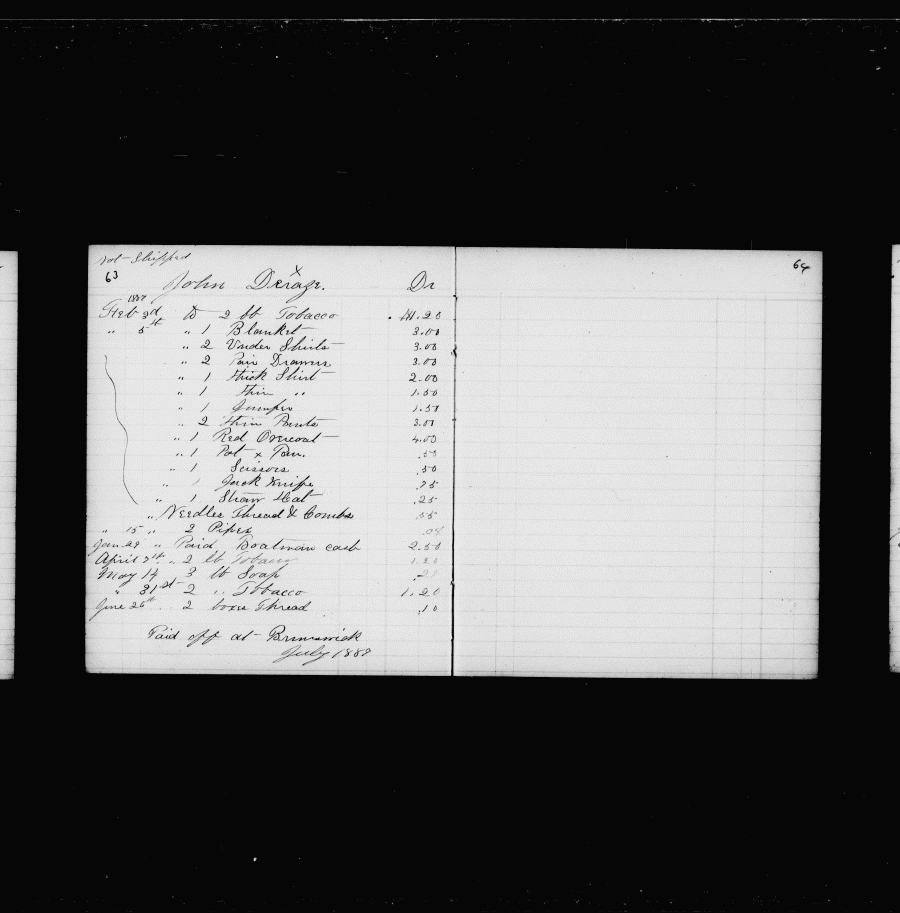 Not Shipped
63
John Derage. Dr
x
1887
Feb 3rd to 2 lb Tobacco 1.20
" 5th " 1 Blanket 3.00
" 2 Under Shirts 3.00
" 2 Pair Drawers 3.00
" 1 thick Shirt 2.00
" 1 thin " 1.50
" 1 Jumper 1.50
" 2 thin Pants 3.00
" 1 Red Overcoat 4.00
" 1 Pot x Pan. .50
" 1 Scissors .50
" 1 Jack Knife .75
" 1 Straw Hat .25
" Needles Thread & Combs .55
" 15 " 2 Pipes .04
Jan 29 " Paid Boatman cash 2.50
April 7th " 2 lb Tobacco 1.20
May 14 3 lb Soap
" 31st 2 " Tobacco 1.20
June 26th 2 Thread .10
Paid off at Brunswick
July 1887
64